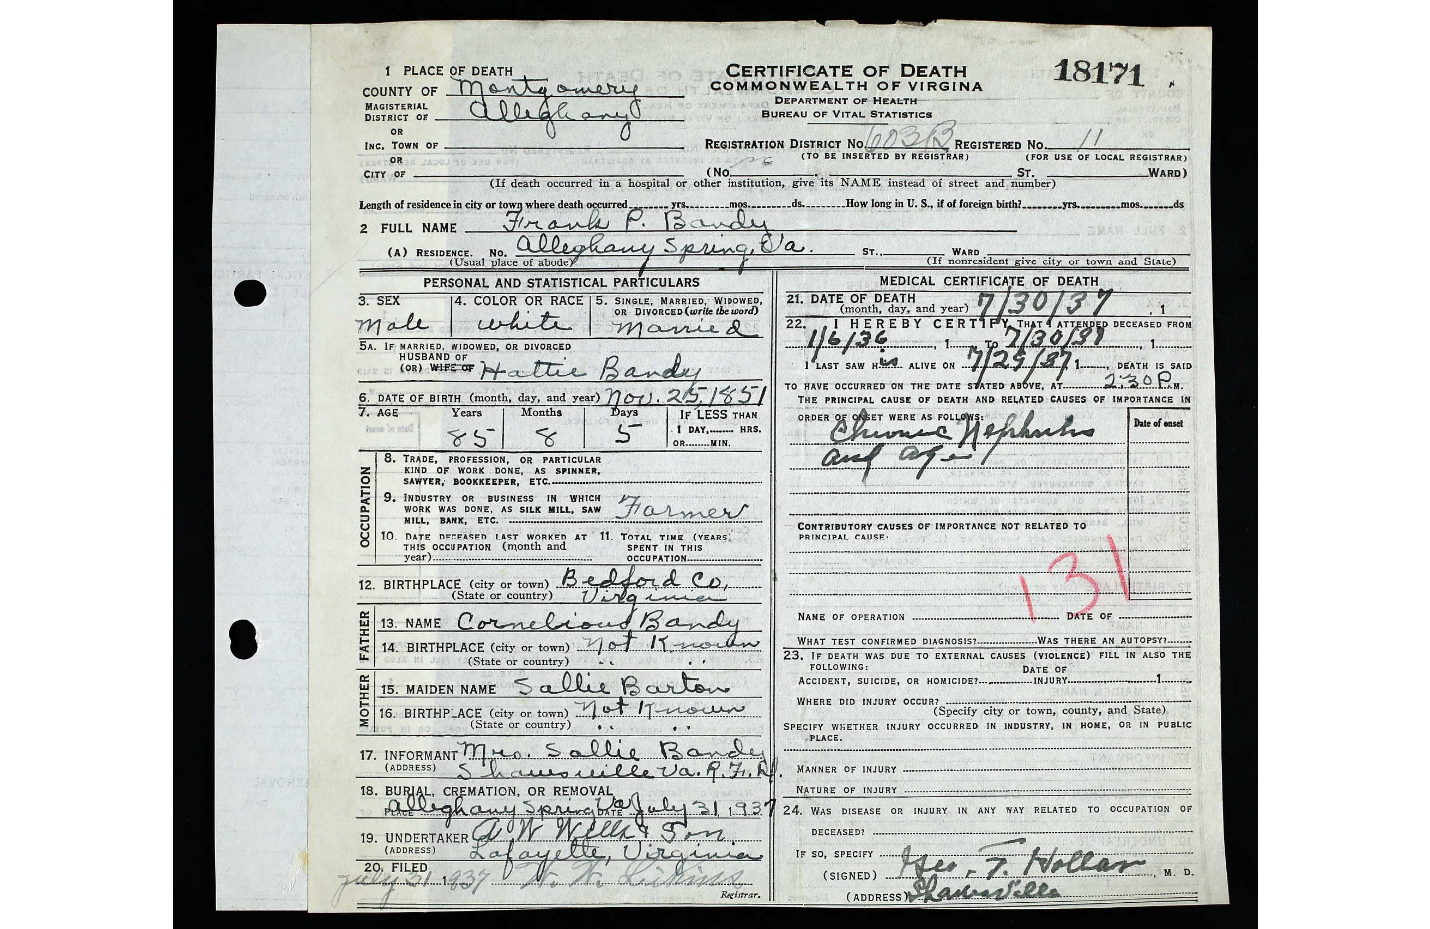 1 PLACE OF DEATH
COUNTY OF Montgomery
MAGISTERIAL
DISTRICT OF Alleghany
OR
INC. TOWN OF
OR
CITY OF
CERTIFICATE OF DEATH
COMMONWEALTH OF VIRGINIA
DEPARTMENT OF HEALTH
BUREAU OF VITAL STATISTICS
18171
REGISTRATION DISTRICT No. 603B REGISTERED No. 11
(TO BE INSERTED BY REGISTRAR) (FOR USE OF LOCAL REGISTRAR)
(No. ST. WARD)
(If death occurred in a hospital or other institution, give its NAME instead of street and number)
Length of residence in city or town where death occurred yrs. mos. ds. How long in U. S., if of foreign birth? yrs. mos. ds
2 FULL NAME Frank P. Bandy
(A) RESIDENCE. No. Alleghany Spring, Va. ST., WARD
(Usual place of abode) (If nonresident give city or town and State)
PERSONAL AND STATISTICAL PARTICULARS
3. SEX Male
4. COLOR OR RACE white
5. SINGLE, MARRIED, WIDOWED,
OR DIVORCED (write the word)
Married
5A. IF MARRIED, WIDOWED, OR DIVORCED
HUSBAND OF
(OR) WIFE OF Hattie Bandy
6. DATE OF BIRTH (month, day, and year) Nov. 25, 1851
7. AGE Years Months Days IF LESS THAN
1 DAY, HRS.
OR MIN.
85 8 5
OCCUPATION
8. TRADE, PROFESSION, OR PARTICULAR
KIND OF WORK DONE, AS SPINNER,
SAWYER, BOOKKEEPER, ETC.
9. INDUSTRY OR BUSINESS IN WHICH
WORK WAS DONE, AS SILK MILL, SAW
MILL, BANK, ETC. Farmer
10. DATE DECEASED LAST WORKED AT
THIS OCCUPATION (month and
year)
11. TOTAL TIME (YEARS)
SPENT IN THIS
OCCUPATION
12. BIRTHPLACE (city or town) Bedford Co,
(State or country) Virginia
FATHER
13. NAME Cornelious Bandy
14. BIRTHPLACE (city or town) Not Known
(State or country) " "
MOTHER
15. MAIDEN NAME Sallie Barton
16. BIRTHPLACE (city or town) Not Known
(State or country) " "
17. INFORMANT Mrs. Sallie Bandy
(ADDRESS) Shawsville Va. R.F.D.
18. BURIAL, CREMATION, OR REMOVAL
PLACE Alleghany Spring Va DATE July 31, 1937
19. UNDERTAKER A W Wells & Son
(ADDRESS) Lafayette, Virginia
20. FILED
July 31 1937
Registrar.
MEDICAL CERTIFICATE OF DEATH
21. DATE OF DEATH
(month, day, and year) 7/30/37 , 1
22. I HEREBY CERTIFY, THAT I ATTENDED DECEASED FROM
1/6/36, 1 TO 7/30/37, 1
I LAST SAW H im ALIVE ON 7/29/37, 1 , DEATH IS SAID
TO HAVE OCCURRED ON THE DATE STATED ABOVE, AT 2:30 P. M.
THE PRINCIPAL CAUSE OF DEATH AND RELATED CAUSES OF IMPORTANCE IN
ORDER OF ONSET WERE AS FOLLOWS:
Date of onset
Chronic Nephritis
and age
CONTRIBUTORY CAUSES OF IMPORTANCE NOT RELATED TO
PRINCIPAL CAUSE:
131
NAME OF OPERATION DATE OF
WHAT TEST CONFIRMED DIAGNOSIS? WAS THERE AN AUTOPSY?
23. IF DEATH WAS DUE TO EXTERNAL CAUSES (VIOLENCE) FILL IN ALSO THE
FOLLOWING: DATE OF
ACCIDENT, SUICIDE, OR HOMICIDE? INJURY 1
WHERE DID INJURY OCCUR?
(Specify city or town, county, and State)
SPECIFY WHETHER INJURY OCCURRED IN INDUSTRY, IN HOME, OR IN PUBLIC
PLACE.
MANNER OF INJURY
NATURE OF INJURY
24. WAS DISEASE OR INJURY IN ANY WAY RELATED TO OCCUPATION OF
DECEASED?
IF SO, SPECIFY
(SIGNED) Geo. T. Hollan , M. D.
(ADDRESS) Shawsville